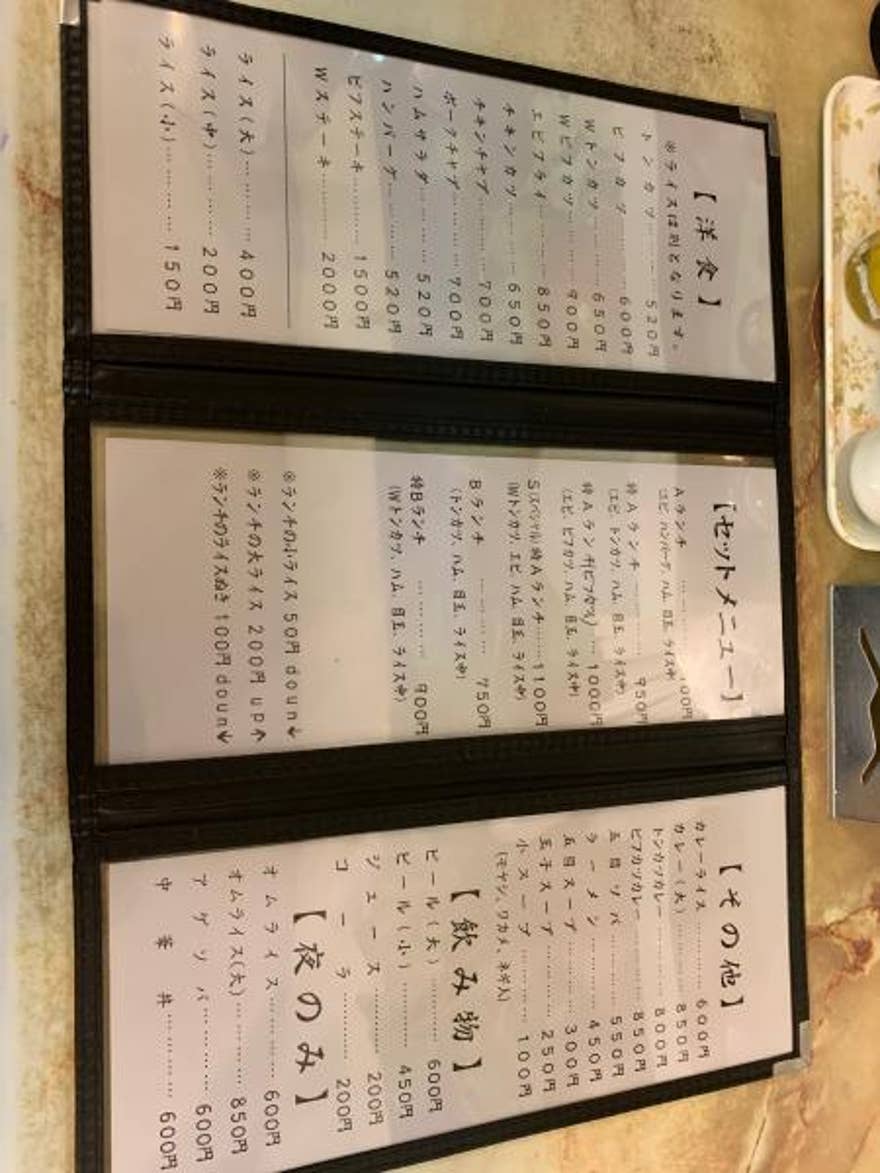 【洋食】
※ライスは別となります。
トンカツ………520円
ビフカツ………600円
Wトンカツ………650円
Wビフカツ………900円
エビフライ………850円
チキンカツ………650円
チキンチャプ………700円
ポークチャプ………700円
ハムサラダ………520円
ハンバーグ………520円
ビフステーキ………1500円
Wステーキ………2000円
ライス(大)………400円
ライス(中)………200円
ライス(小)………150円
[セットメニュー]
Aランチ………
(エビ、ハンバーグ、ハム、目玉、ライス中)
特Aランチ………950円
(エビ、トンカツ、ハム、目玉、ライス中)
特Aランチ(ビフカツ)…1000円
(エビ、ビフカツ、ハム、目玉、ライス中)
S(スペシャル)特Aランチ……1100円
(Wトンカツ、エビ、ハム、目玉、ライス中)
Bランチ………750円
(トンカツ、ハム、目玉、ライス中)
特Bランチ………900円
(Wトンカツ、ハム、目玉、ライス中)
※ランチの小ライス 50円 doun↓
※ランチの大ライス 200円 up↑
※ランチのライスぬき 100円 doun↓
【その他】
カレーライス………600円
カレー(大)………850円
トンカツカレー………800円
ビフカツカレー………850円
五目ソバ………550円
ラーメン………450円
五目スープ………300円
玉子スープ………250円
小スープ………100円
(モヤシ、ワカメ、ネギ入)
【飲み物】
ビール(大)………600円
ビール(小)………450円
ジュース………200円
コーラ………200円
【夜のみ】
オムライス………600円
オムライス(大)………850円
アゲソバ………600円
中華丼………600円